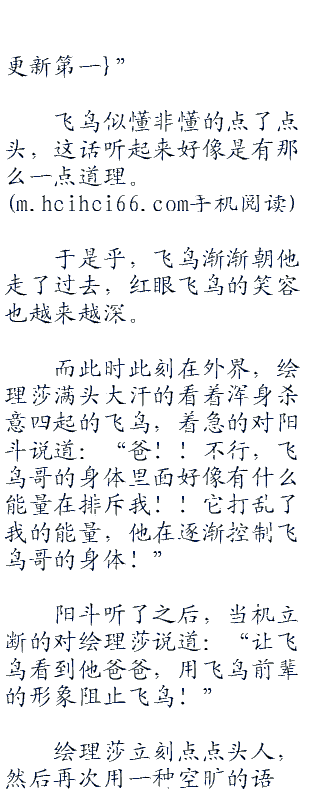 更新第一}”
飞鸟似懂非懂的点了点
头，这话听起来好像是有那
么一点道理。
(m.hcihci66.com手机阅读)
于是乎，飞鸟渐渐朝他
走了过去，红眼飞鸟的笑容
也越来越深。
而此时此刻在外界，绘
理莎满头大汗的看着浑身杀
意四起的飞鸟，着急的对阳
斗说道：“爸！！不行，飞
鸟哥的身体里面好像有什么
能量在排斥我！！它打乱了
我的能量，他在逐渐控制飞
鸟哥的身体！”
阳斗听了之后，当机立
断的对绘理莎说道：“让飞
鸟看到他爸爸，用飞鸟前辈
的形象阻止飞鸟！”
绘理莎立刻点点头人，
然后再次用一种空旷的语